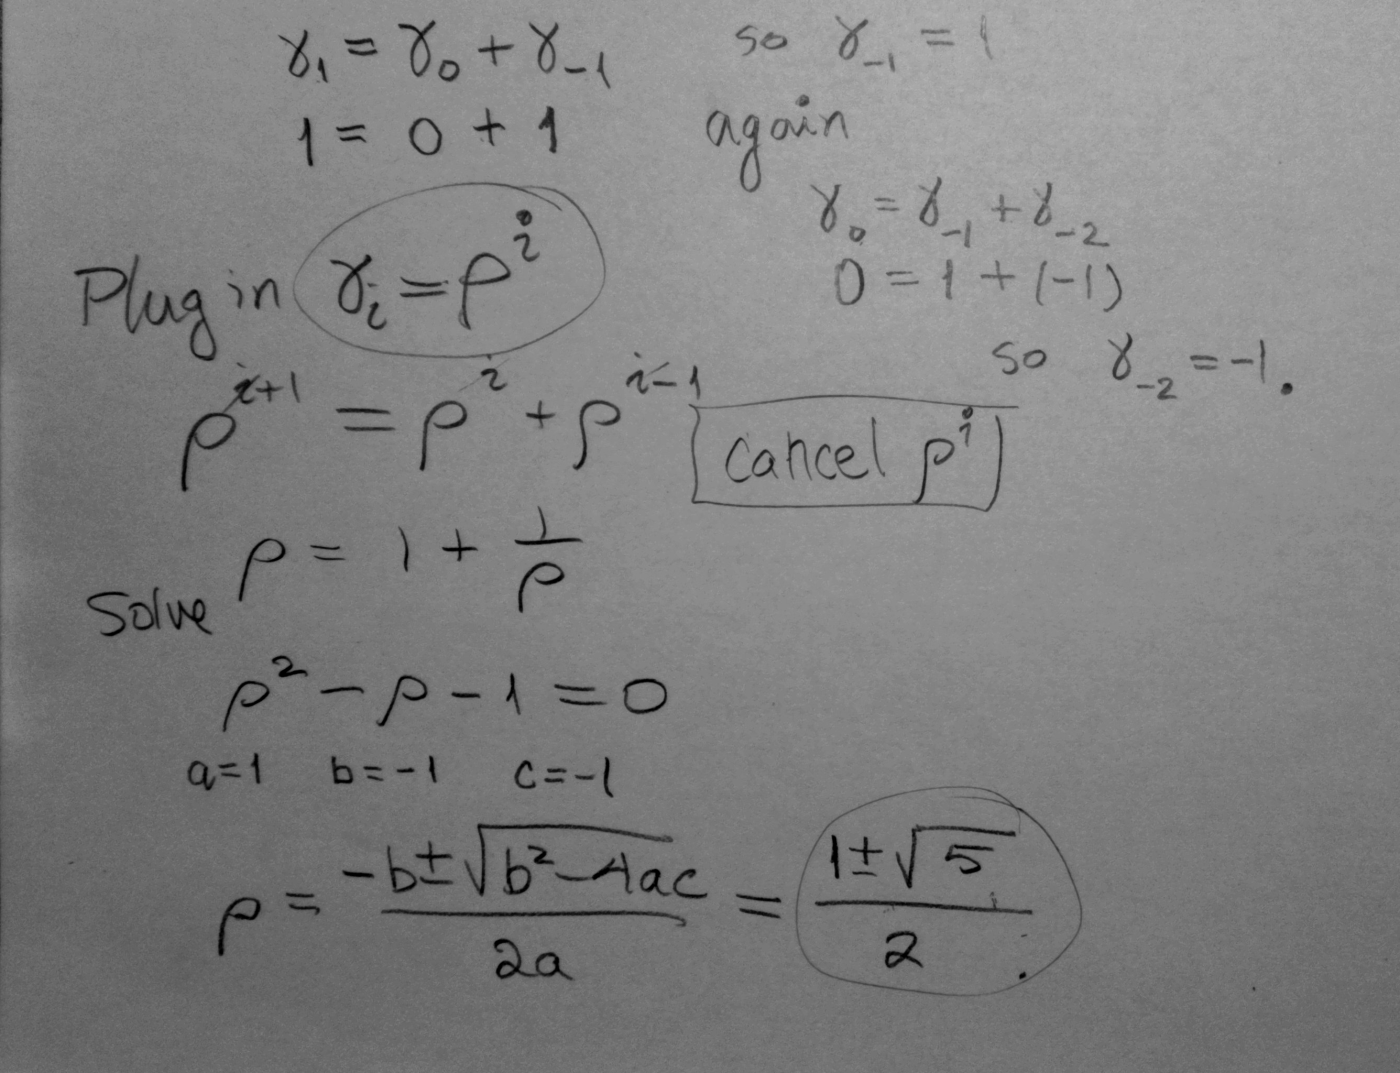 γ₁ = γ₀ + γ₋₁
1 = 0 + 1
so γ₋₁ = 1
again
γ₀ = γ₋₁ + γ₋₂
0 = 1 + (-1)
so γ₋₂ = -1.
Plug in γᵢ = ρⁱ
ρⁱ⁺¹ = ρⁱ + ρⁱ⁻¹
cancel ρⁱ
ρ = 1 + 1/ρ
Solve
ρ² - ρ - 1 = 0
a=1 b=-1 c=-1
ρ = (-b ± √(b² - 4ac))/2a = (1 ± √5)/2.